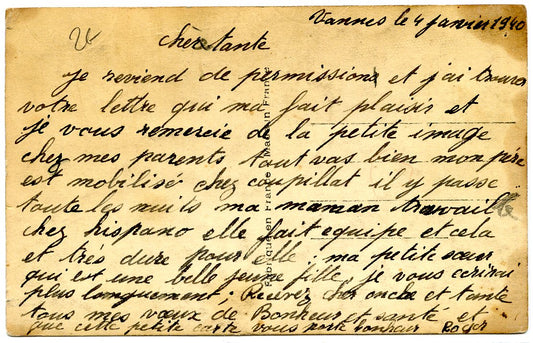 Vannes le 4 janvier 1940
24
chère tante
Je reviend de permission et j'ai trouver
votre lettre qui ma fait plaisir et
je vous remercie de la petite image
chez mes parents tout vas bien mon père
est mobilisé chez coupillat il y passe
toute les nuits ma maman travaille
chez hispano elle fait equipe et cela
et très dure pour elle ; ma petite sœur
qui est une belle jeune fille, je vous ecrirai
plus longuement ; Recevez cher oncle et tante
tous mes vœux de Bonheur et santé et
que cette petite carte vous porte bonheur Roger
Fabriqué en France - Made in France